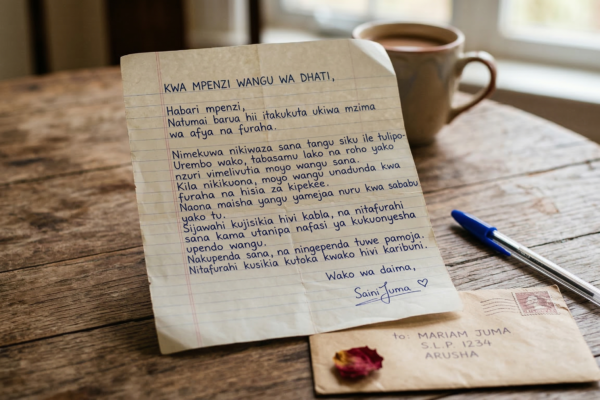 KWA MPENZI WANGU WA DHATI,
Habari mpenzi,
Natumai barua hii itakukuta ukiwa mzima
wa afya na furaha.
Nimekuwa nikiwaza sana tangu siku ile tulipo-
Urembo wako, tabasamu lako na roho yako
nzuri vimelivutia moyo wangu sana.
Kila nikikuona, moyo wangu unadunda kwa
furaha na hisia za kipekee.
Naona maisha yangu yamejaa nuru kwa sababu
yako tu.
Sijawahi kujisikia hivi kabla, na nitafurahi
sana kama utanipa nafasi ya kukuonyesha
upendo wangu.
Nakupenda sana, na ningependa tuwe pamoja.
Nitafurahi kusikia kutoka kwako hivi karibuni.
Wako wa daima,
Saini Juma
to: MARIAM JUMA
S.L.P. 1234
ARUSHA